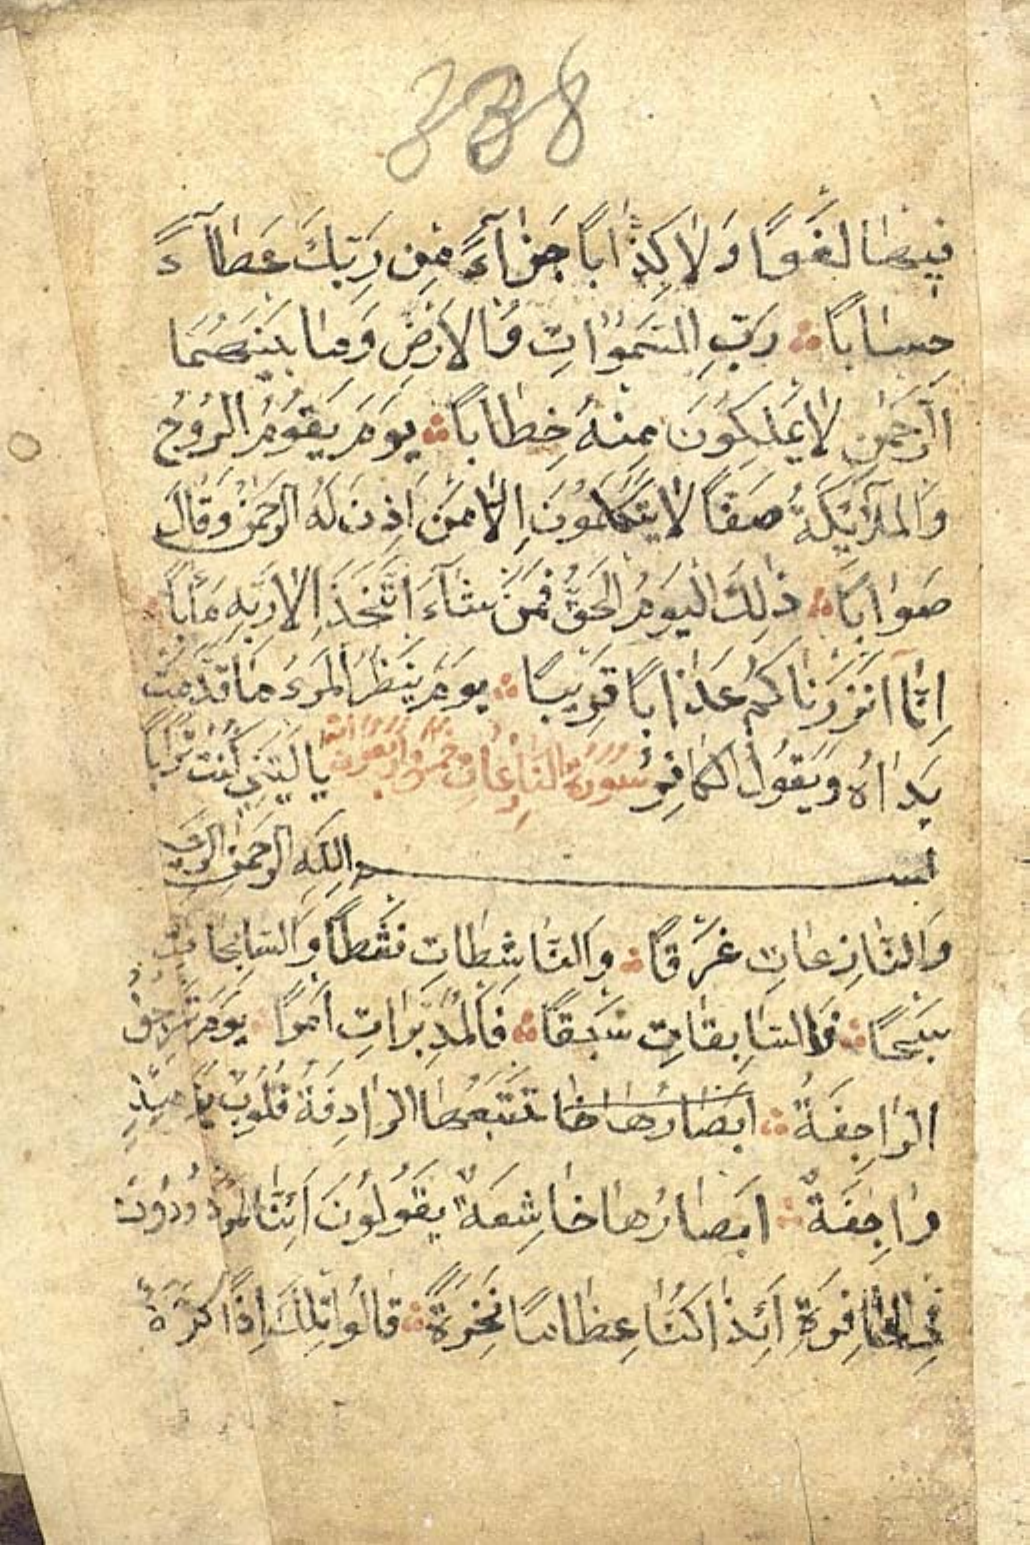 338
فيها لَغوًا وَلَا كِذَّابًا جَزَآءً مِن رَبِّكَ عَطَآءً
حِسَابًا ؞ رَبِّ السَّمٰوَاتِ وَالاَرْضِ وَمَا بَيْنَهُمَا
الرَّحْمٰنِ لَا يَمْلِكُونَ مِنْهُ خِطَابًا ؞ يَوْمَ يَقُومُ الرُّوحُ
وَالمَلَآئِكَةُ صَفًّا لَا يَتَكَلَّمُونَ اِلَّا مَنْ اَذِنَ لَهُ الرَّحْمٰنُ وَقَالَ
صَوَابًا ؞ ذٰلِكَ الْيَوْمُ الْحَقُّ فَمَنْ شَآءَ اتَّخَذَ اِلَا رَبِّهِ مَاٰبًا ؞
اِنَّا اَنْذَرْنَاكُمْ عَذَابًا قَرِيبًا ؞ يَوْمَ يَنْظُرُ المَرْءُ مَا قَدَّمَتْ
يَدَاهُ وَيَقُولُ الكَافِرُ سُورَةُ النَّازِعَاتِ خَمْسٌ وَاَرْبَعُونَ اٰيَة يَا لَيْتَنِي كُنْتُ تُرَابًا
بسم اللّٰهِ الرَّحْمٰنِ الرَّحِيمِ
وَالنَّازِعَاتِ غَرْقًا ؞ وَالنَّاشِطَاتِ نَشْطًا وَالسَّابِحَاتِ
سَبْحًا ؞ فَالسَّابِقَاتِ سَبْقًا ؞ فَالمُدَبِّرَاتِ اَمْرًا ؞ يَوْمَ تَرْجُفُ
الرَّاجِفَةُ ؞ اَبْصَارُهَا خَا تَتْبَعُهَا الرَّادِفَةُ قُلُوبٌ يَوْمَئِذٍ
وَاجِفَةٌ ؞ اَبْصَارُهَا خَاشِعَةٌ يَقُولُونَ اَئِنَّا لَمَرْدُودُونَ
فِي الحَافِرَةِ اَئِذَا كُنَّا عِظَامًا نَخِرَةً ؞ قَالُوا تِلْكَ اِذًا كَرَّةٌ